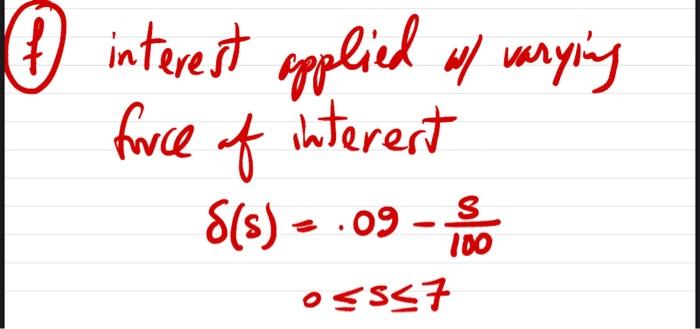 (f) interest applied w/ varying
force of interest
δ(s) = .09 - s/100
0 ≤ s ≤ 7